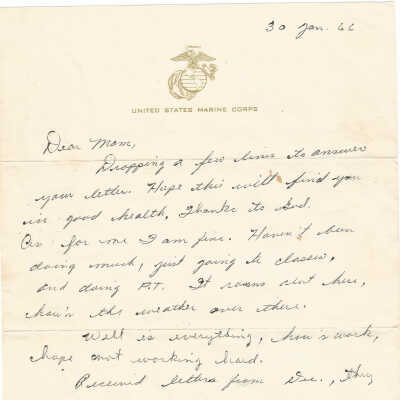 30 Jan. 66
UNITED STATES MARINE CORPS
Dear Mom,
Dropping a few lines to answer
your letter. Hope this will find you
in good health, Thanks to God.
As for me I am fine. Haven't been
doing much, just going to classes,
and doing P.T. It rains alot here,
how's the weather over there.
Well is everything, how's work,
hope not working hard.
Received letters from Dec., they